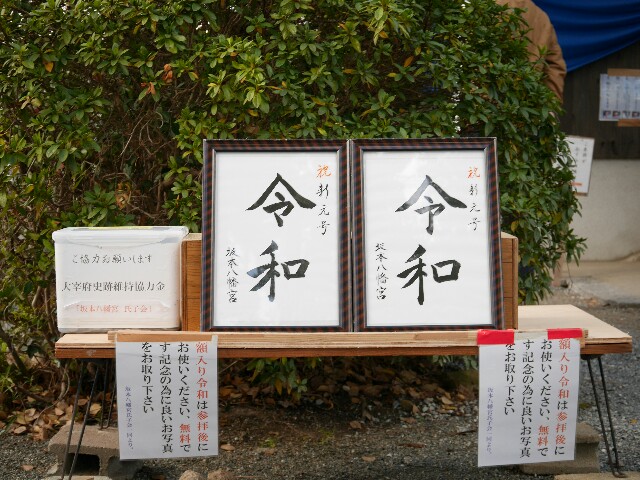 ご協力お願いします
大宰府史跡維持協力金
「坂本八幡宮 氏子会」
祝 新元号
令和
坂本八幡宮
祝 新元号
令和
坂本八幡宮
額入り令和は参拝後に
お使いください。無料で
す記念の為に良いお写真
をお取り下さい
坂本八幡宮氏子会一同より。
額入り令和は参拝後に
お使いください。無料で
す記念の為に良いお写真
をお取り下さい
坂本八幡宮氏子会一同より。